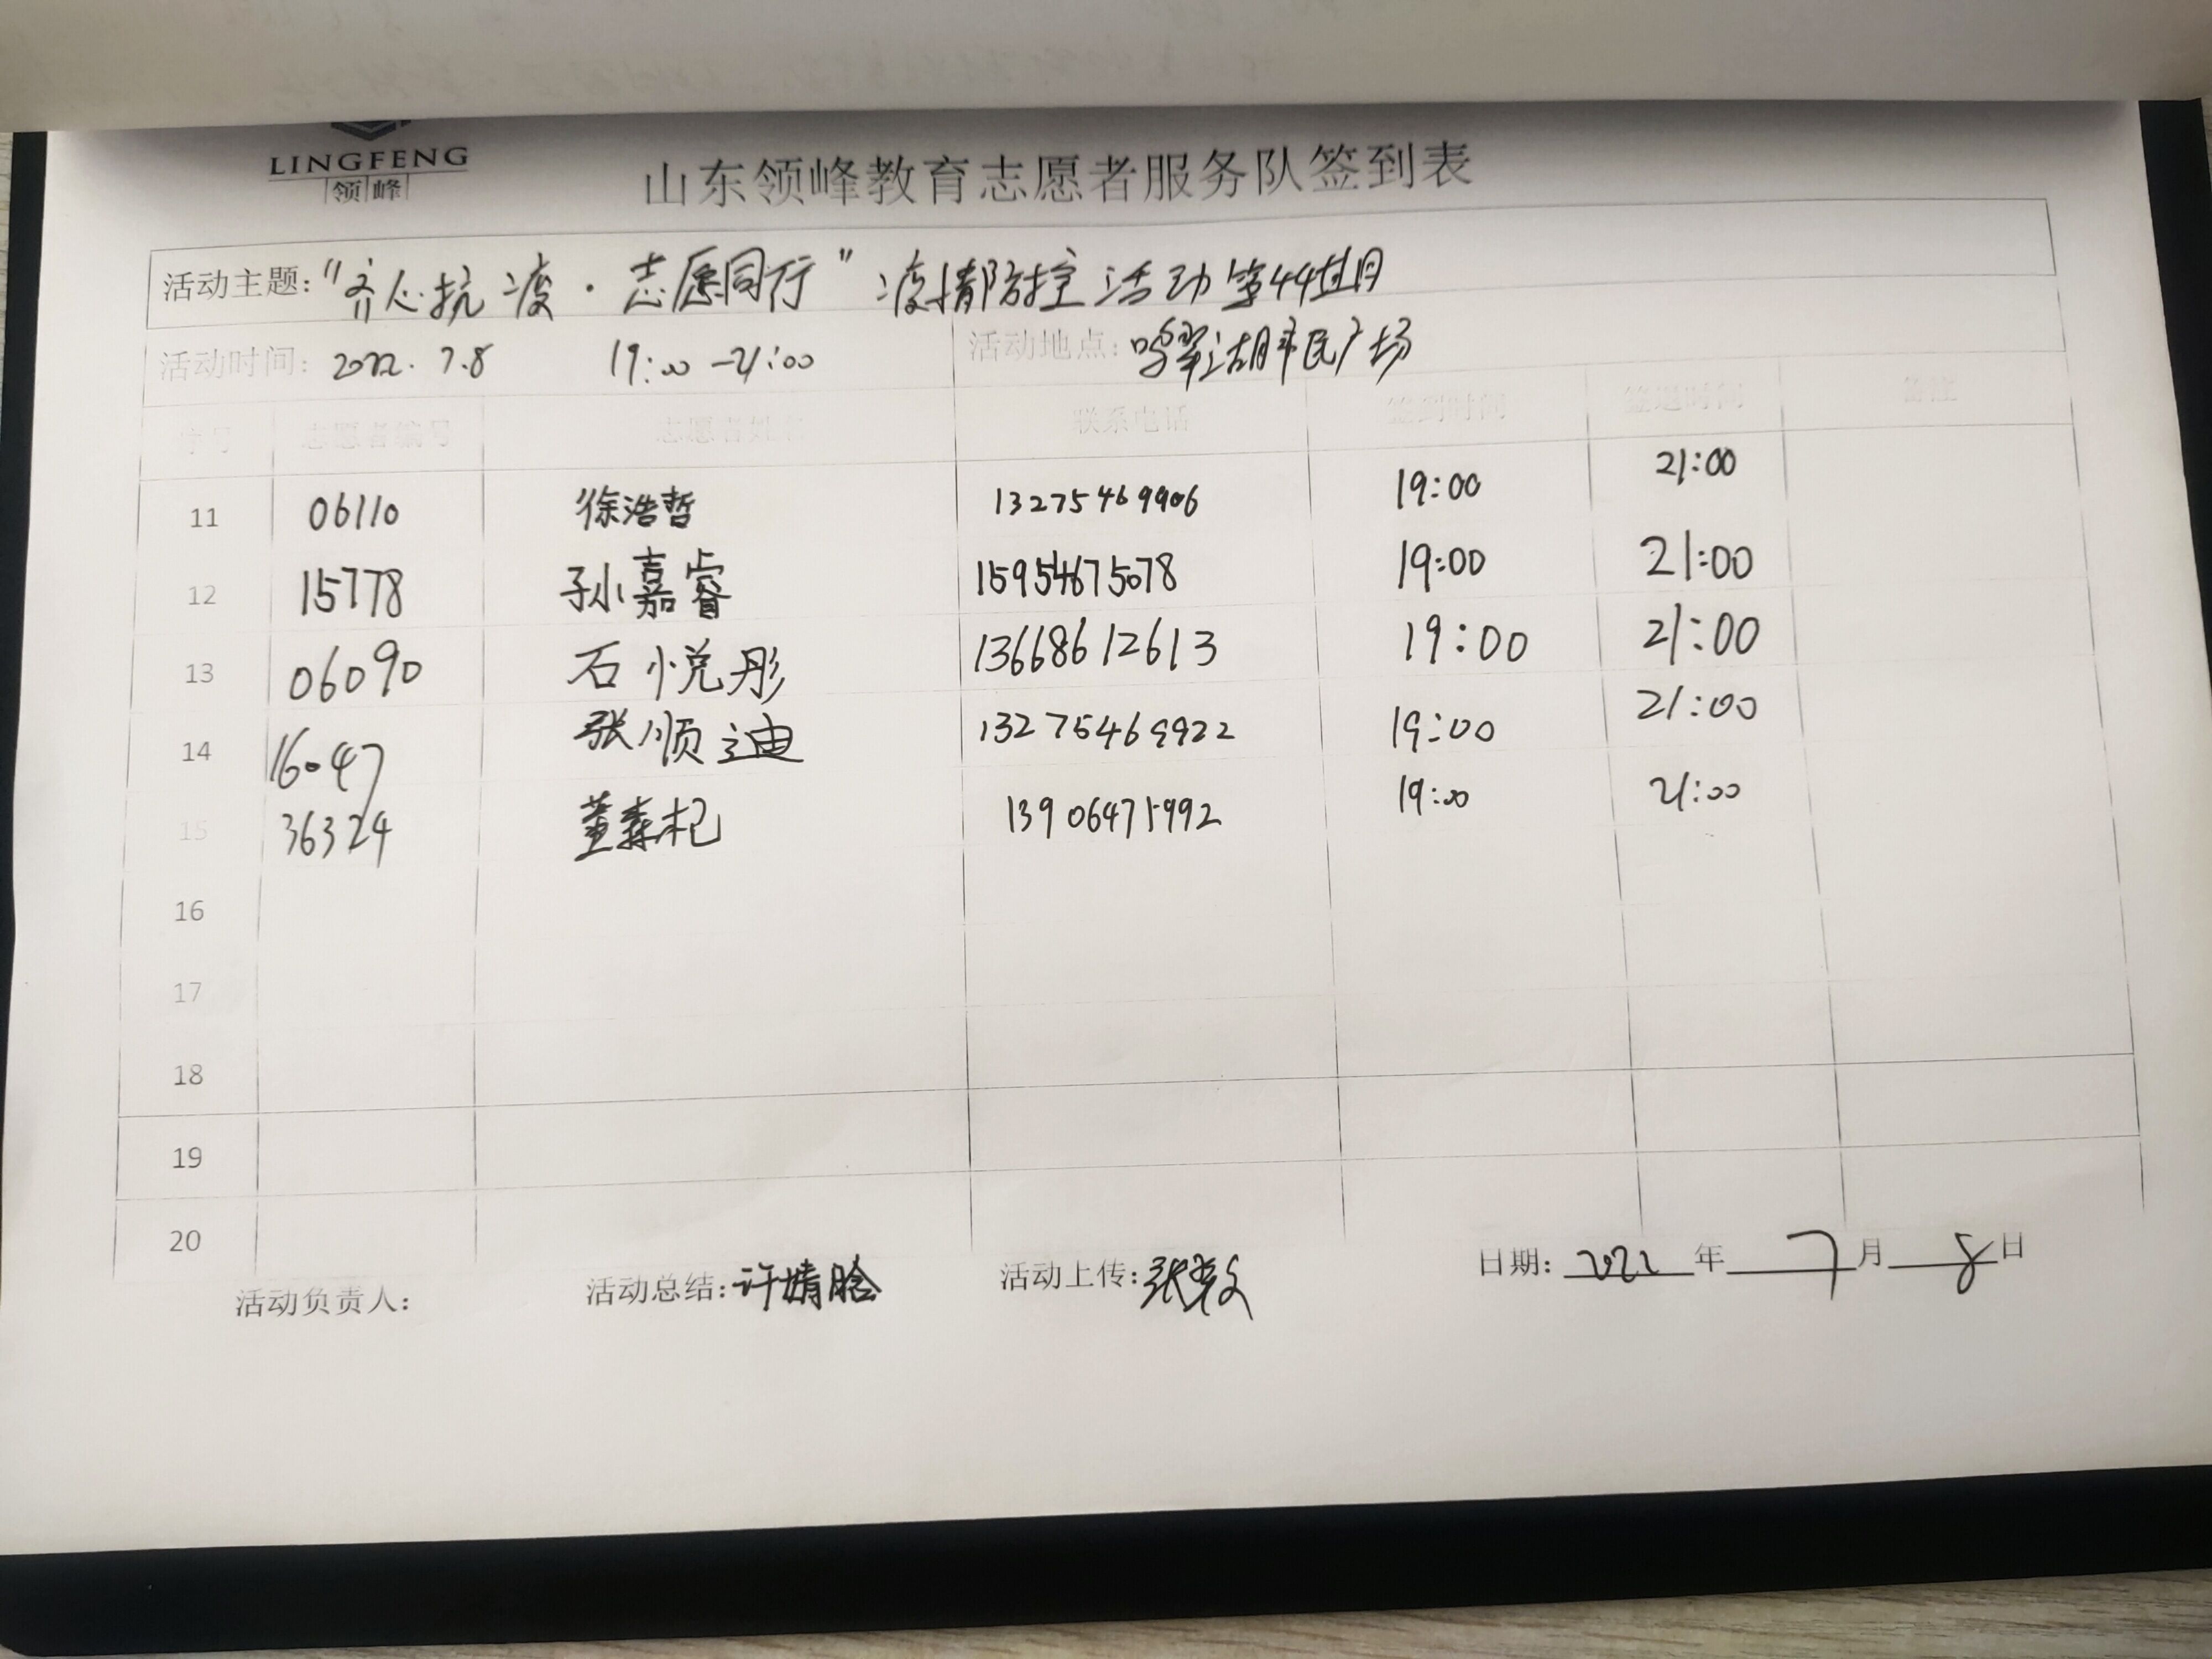 LINGFENG
领峰
山东领峰教育志愿者服务队签到表
活动主题："齐心抗疫·志愿同行"疫情防控活动第44期
活动时间：2022.7.8 19:00-21:00 活动地点：鸣翠湖市民广场
序号 志愿者编号 志愿者姓名 联系电话 签到时间 签退时间 备注
11 06110 徐浩哲 13275469906 19:00 21:00
12 15778 孙嘉睿 15954675078 19:00 21:00
13 06090 石悦彤 13668612613 19:00 21:00
14 16047 张顺迪 13275469922 19:00 21:00
15 36324 董森杞 13906471992 19:00 21:00
16
17
18
19
20
活动负责人： 活动总结：许婧晗 活动上传：张 日期：2022年7月8日